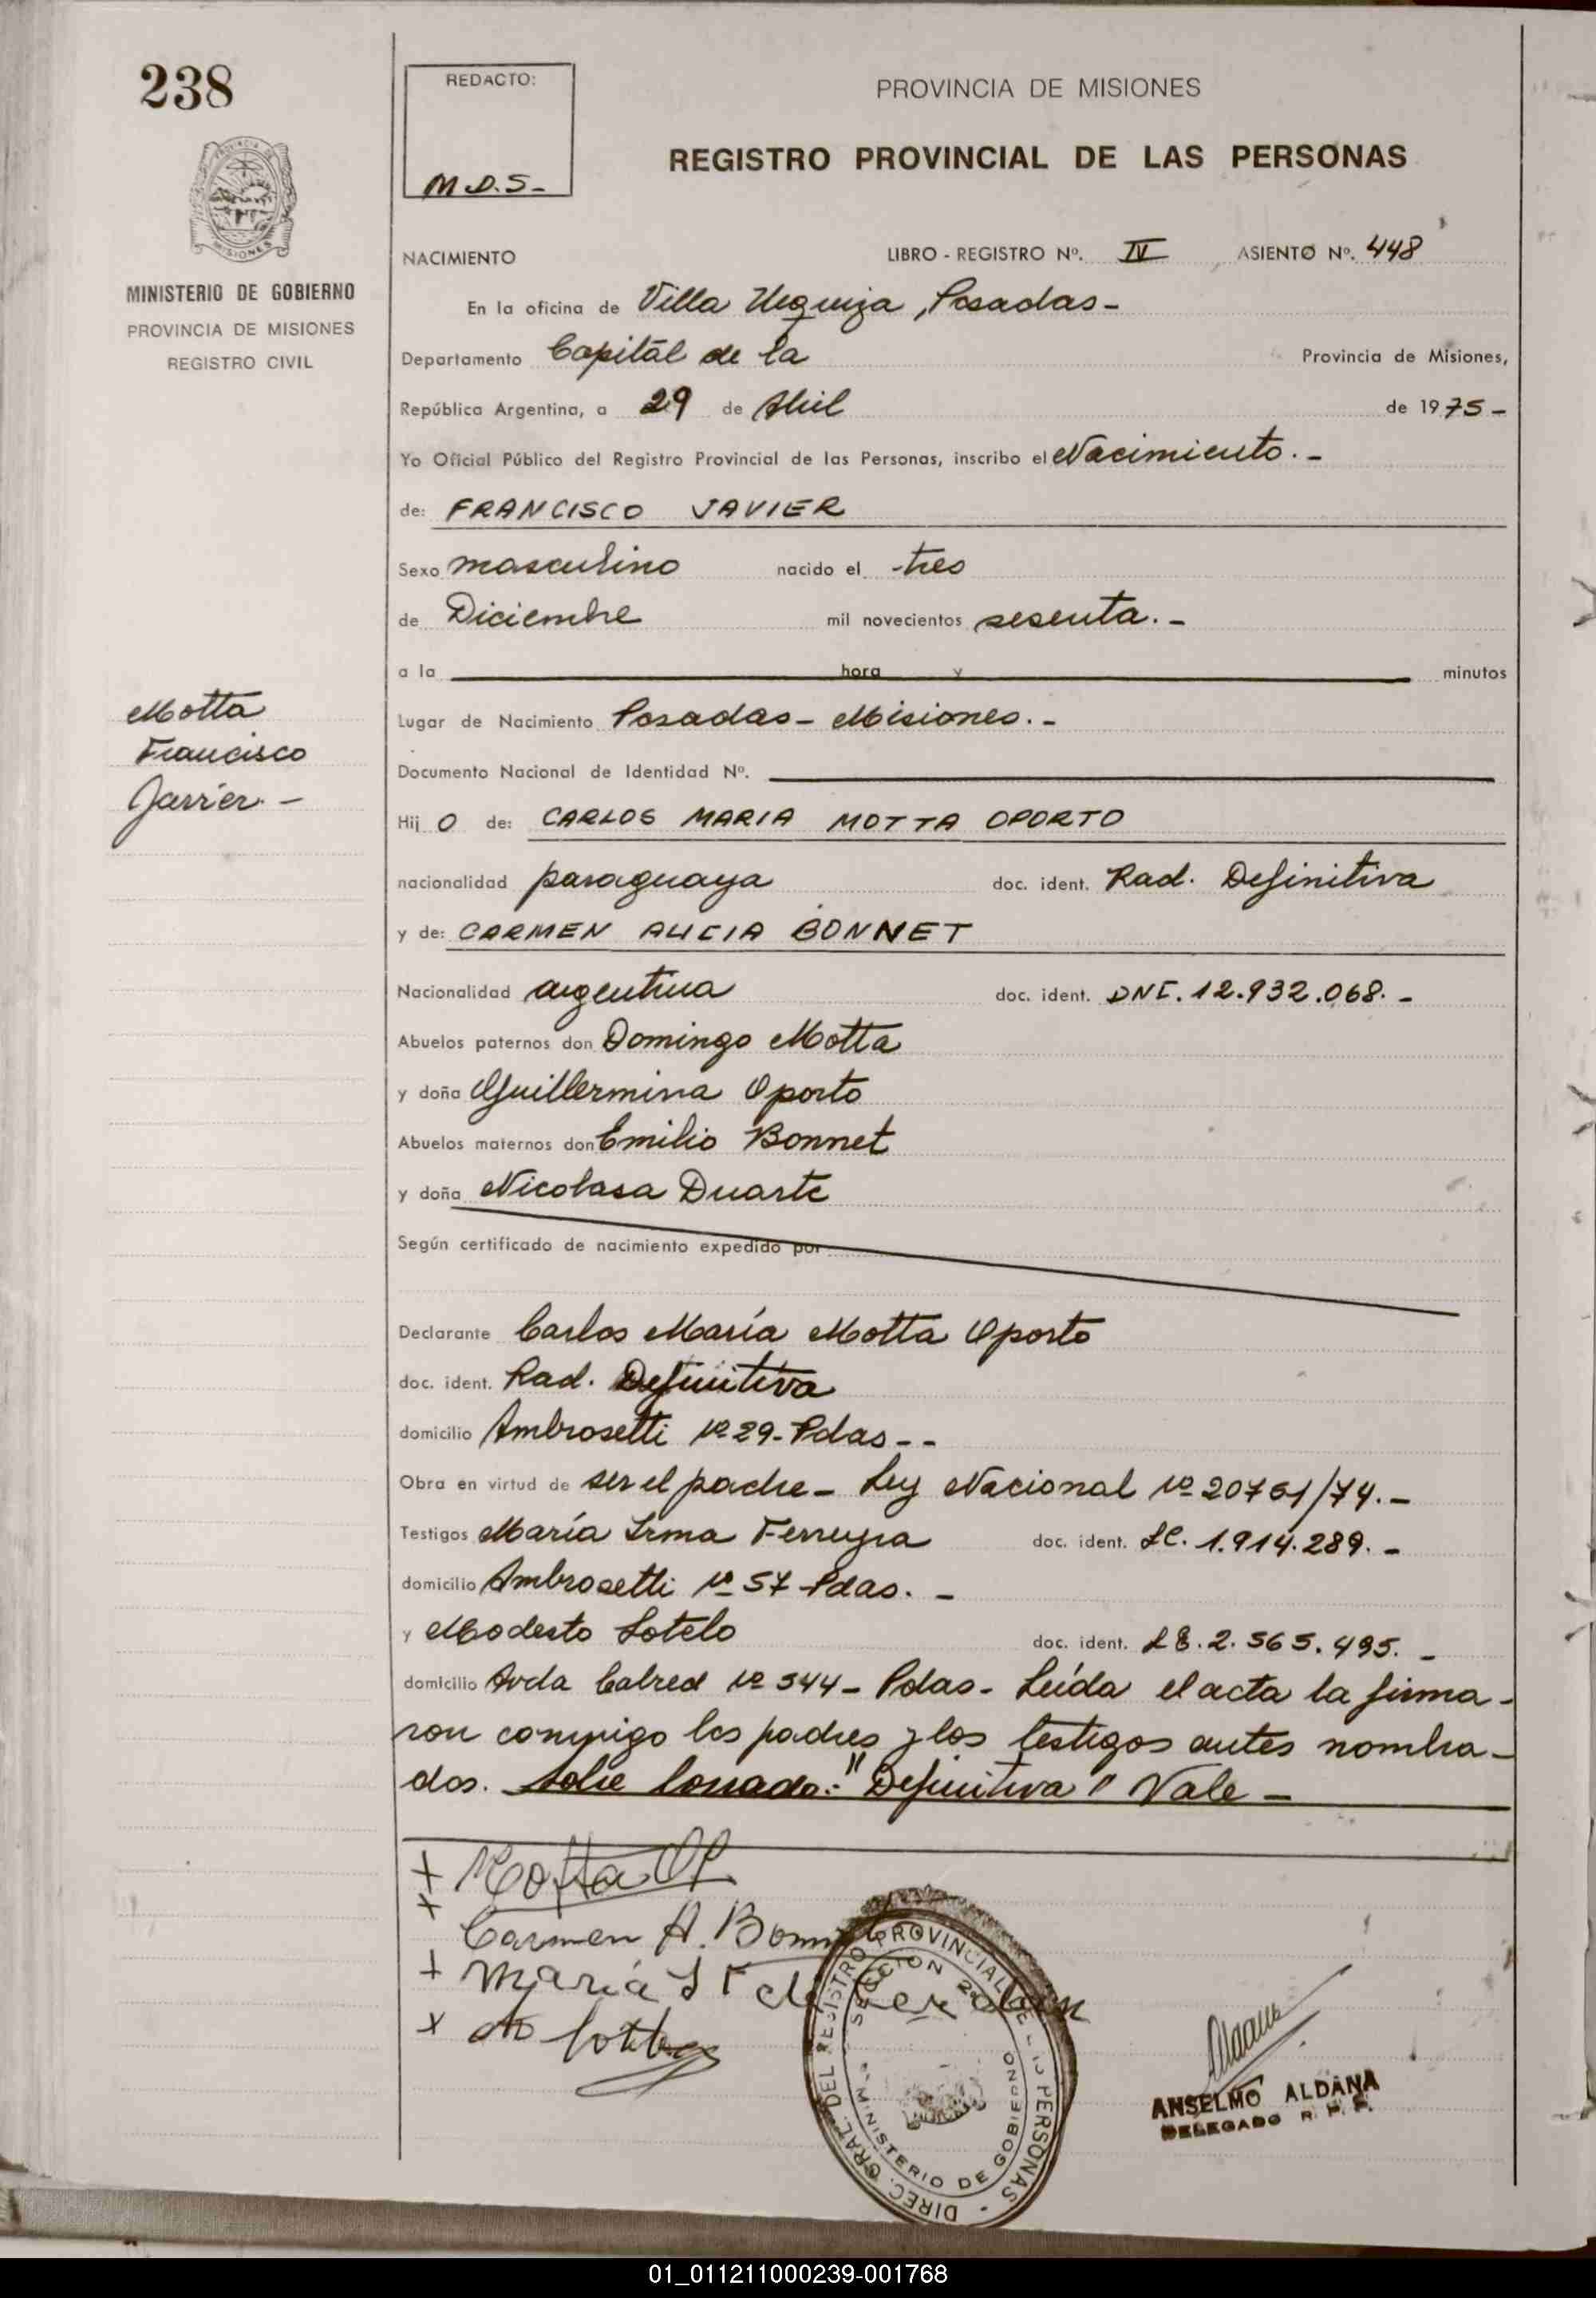 238
REDACTO:
M.D.S-
PROVINCIA DE MISIONES
REGISTRO PROVINCIAL DE LAS PERSONAS
PROVINCIA DE
MISIONES
MINISTERIO DE GOBIERNO
PROVINCIA DE MISIONES
REGISTRO CIVIL
NACIMIENTO LIBRO - REGISTRO Nº. IV ASIENTO Nº. 448
En la oficina de Villa Urquiza, Posadas-
Departamento Capital de la Provincia de Misiones,
República Argentina, a 29 de Abril de 1975-
Yo Oficial Público del Registro Provincial de las Personas, inscribo el Nacimiento.-
de: FRANCISCO JAVIER
Sexo masculino nacido el tres
de Diciembre mil novecientos sesenta.-
a la hora y minutos
Motta
Francisco
Javier.-
Lugar de Nacimiento Posadas- Misiones.-
Documento Nacional de Identidad Nº.
Hij O de: CARLOS MARIA MOTTA OPORTO
nacionalidad paraguaya doc. ident. Rad. Definitiva
y de: CARMEN ALICIA BONNET
Nacionalidad argentina doc. ident. DNI. 12.932.068.-
Abuelos paternos don Domingo Motta
y doña Guillermina Oporto
Abuelos maternos don Emilio Bonnet
y doña Nicolasa Duarte
Según certificado de nacimiento expedido por
Declarante Carlos María Motta Oporto
doc. ident. Rad. Definitiva
domicilio Ambrosetti Nº 29-Pdas--
Obra en virtud de ser el padre- Ley Nacional Nº 20751/74.-
Testigos María Irma Ferreyra doc. ident. LC. 1.914.289.-
domicilio Ambrosetti Nº 57-Pdas.-
y Modesto Sotelo doc. ident. LE. 2.565.495.-
domicilio Avda Nº 544- Pdas- Leída el acta la firma-
ron conmigo los padres y los testigos antes nombra-
dos. Sobre borrado:"Definitiva" Vale-
+ Motta Op.
x Carmen A. Bonnet
+ María I F de
x M Sotelo
DIREC. GRAL. DEL REGISTRO PROVINCIAL DE LAS PERSONAS -
SECCION 2a
MINISTERIO DE GOBIERNO
ANSELMO ALDANA
DELEGADO R. P. P.
01_011211000239-001768